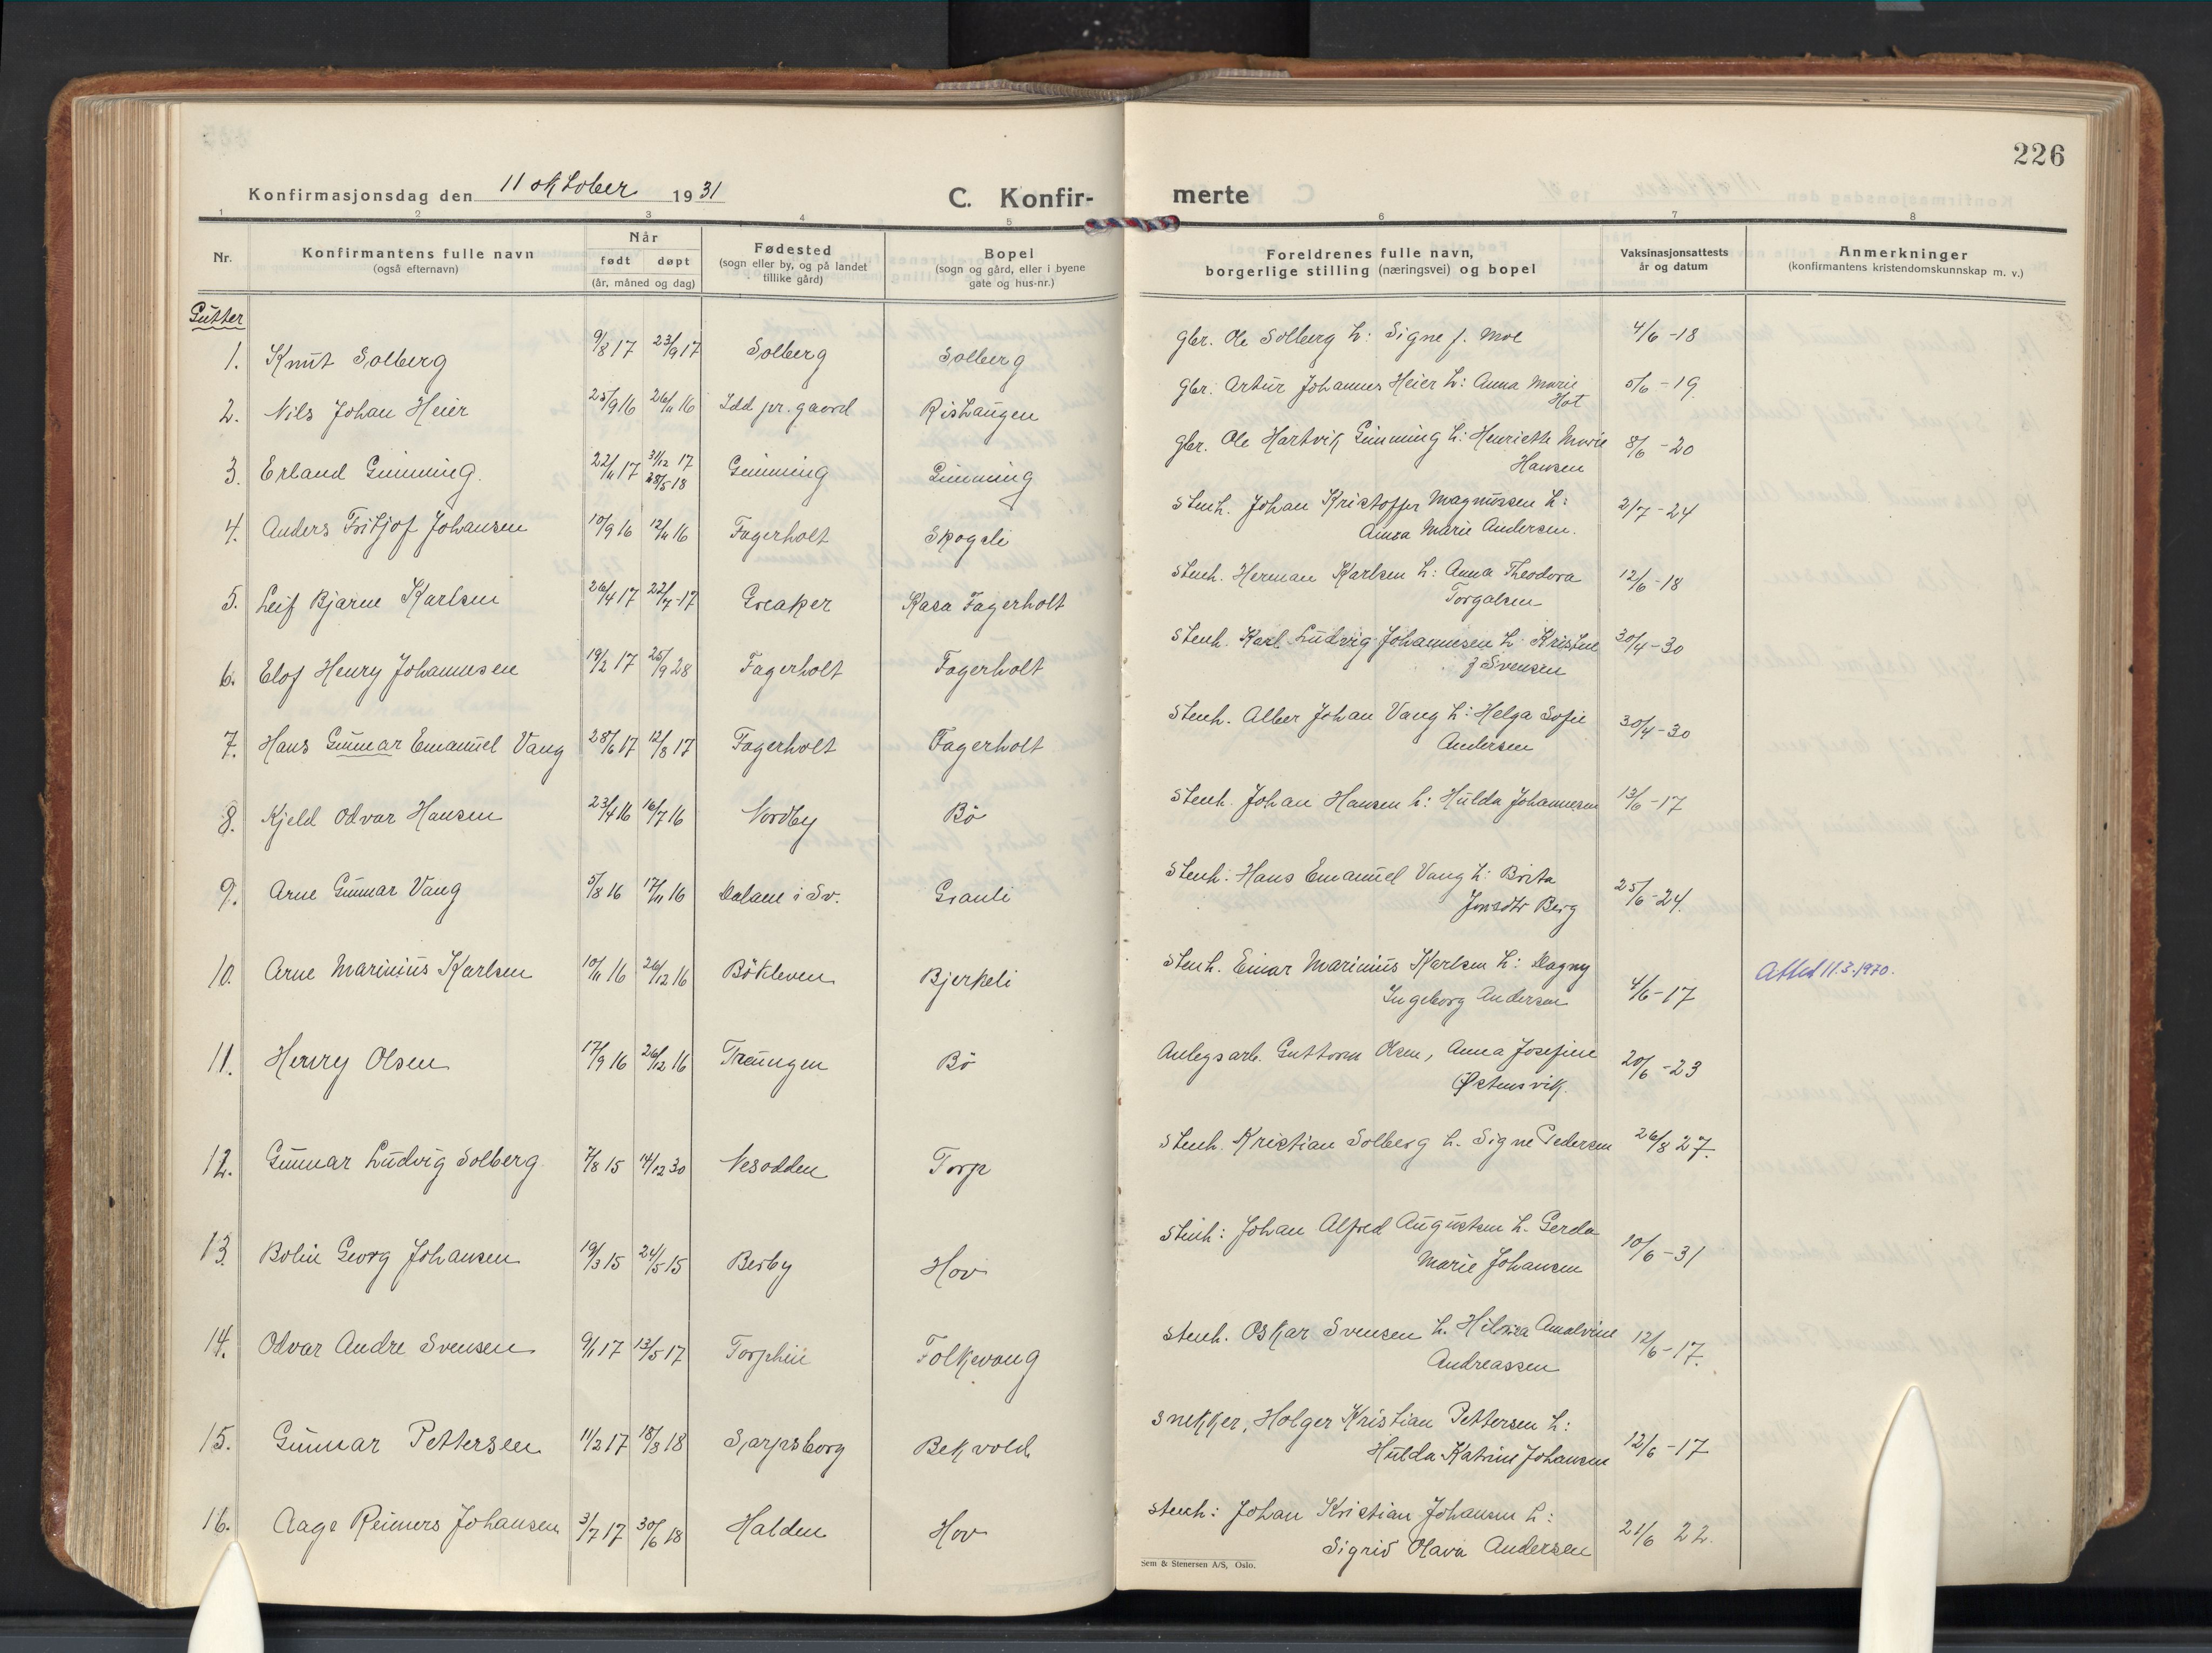 226
Konfirmasjonsdag den 11 oktober 1931
C. Konfir-
merte
1 2 3 4 5 6 7 8
Nr.
Konfirmantens fulle navn
(også efternavn)
Når
født døpt
(år, måned og dag)
Fødested
(sogn eller by, og på landet
tillike gård)
Bopel
(sogn og gård, eller i byene
gate og hus-nr.)
Foreldrenes fulle navn,
borgerlige stilling (næringsvei) og bopel
Vaksinasjonsattests
år og datum
Anmerkninger
(konfirmantens kristendomskunnskap m. v.)
Gutter
1. Knut Solberg 9/8 17 23/9 17 Solberg Solberg gbr. Ole Solberg h: Signe f. Moe 4/6 -18
2. Nils Johan Heier 25/9 16 26/11 16 Idd pr. gaard Rishaugen gbr. Artur Johannes Heier h: Anna Marie 5/6 -19
Hot
3. Erland Gimming. 22/11 17 31/12 17 Gimming Gimming gbr. Ole Hartvik Gimming h: Henriette Marie 8/6 -20
28/5 18
Hansen
4. Anders Fritjof Johansen 10/9 16 12/11 16 Fagerholt Skogli stenh. Johan Kristoffer Magnussen h: 2/7 -24
Anna Marie Andersen.
5. Leif Bjarne Karlsen 26/4 17 22/7 -17 Greaker Kasa Fagerholt stenh. Herman Karlsen h: Anna Theodora 12/6 -18
Torgalsen
6. Elof Henry Johannesen 19/2 17 25/9 28 Fagerholt Fagerholt stenh. Karl Ludvig Johannesen h. Kristine 30/4 -30
f Svensen
7. Hans Gunnar Emanuel Vang 28/6 17 12/8 17 Fagerholt Fagerholt stenh. Alber Johan Vang h: Helga Sofie 30/4 -30
Andersen
8. Kjeld Odvar Hansen 23/4 16 16/7 16 Nordby Bö stenh. Johan Hansen h: Hulda Johannesen 13/6 -17
9. Arne Gunnar Vang 5/8 16 17/11 16 Dalane i Sv. Granli stenh. Hans Emanuel Vang h: Brita 25/6 -24.
Jonsdtr Berg
10. Arne Marinius Karlsen 10/11 16 26/12 16 Bökleven Bjerkeli stenh. Einar Marinius Karlsen h: Dagny 4/6 -17 Attest 11.3.1970.
Ingeborg Andersen
11. Henry Olsen 17/9 16 26/12 16 Treungen Bö Anlegsarb. Guttorm Olsen, Anna Josefine 20/6 -23
Østensvik.
12. Gunnar Ludvig Solberg. 7/8 15 14/12 30 Nesodden Torp stenh. Kristian Solberg h. Signe Pedersen 26/8 27.
13. Bolin Georg Johansen 19/3 15 24/5 15 Berby Hov stenh: Johan Alfred Augustsen h. Gerda 10/6 -31
Marie Johansen
14. Odvar Andre Svensen 9/1 17 13/5 17 Torphin Folkvang stenh. Oskar Svensen h. Hilma Amalvine 12/6 -17.
Andreassen
15. Gunnar Pettersen 11/2 17 18/3 18 Sarpsborg Bekvold snekker, Holger Kristian Pettersen h: 12/6 -17
Hulda Katrine Johansen
16. Aage Reimers Johansen 3/7 17 30/6 18 Halden Hov stenh: Johan Kristian Johansen h: 21/6 22.
Sigrid Olava Andersen
Sem & Stenersen A/S, Oslo.